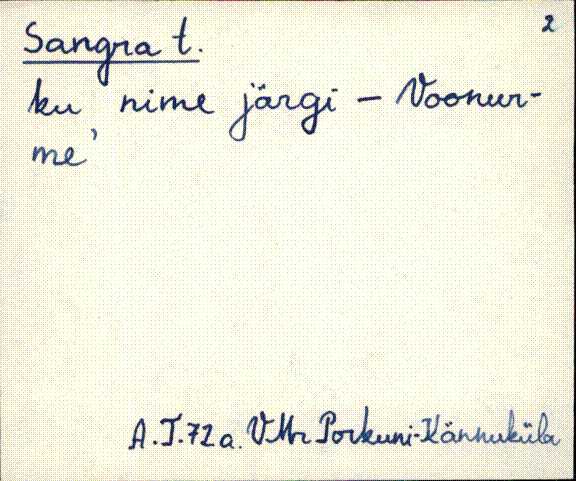 2
Sangra t.
ku nime järgi - Voonur-
me'
A. T. 72 a. VMr Porkuni-Kännuküla